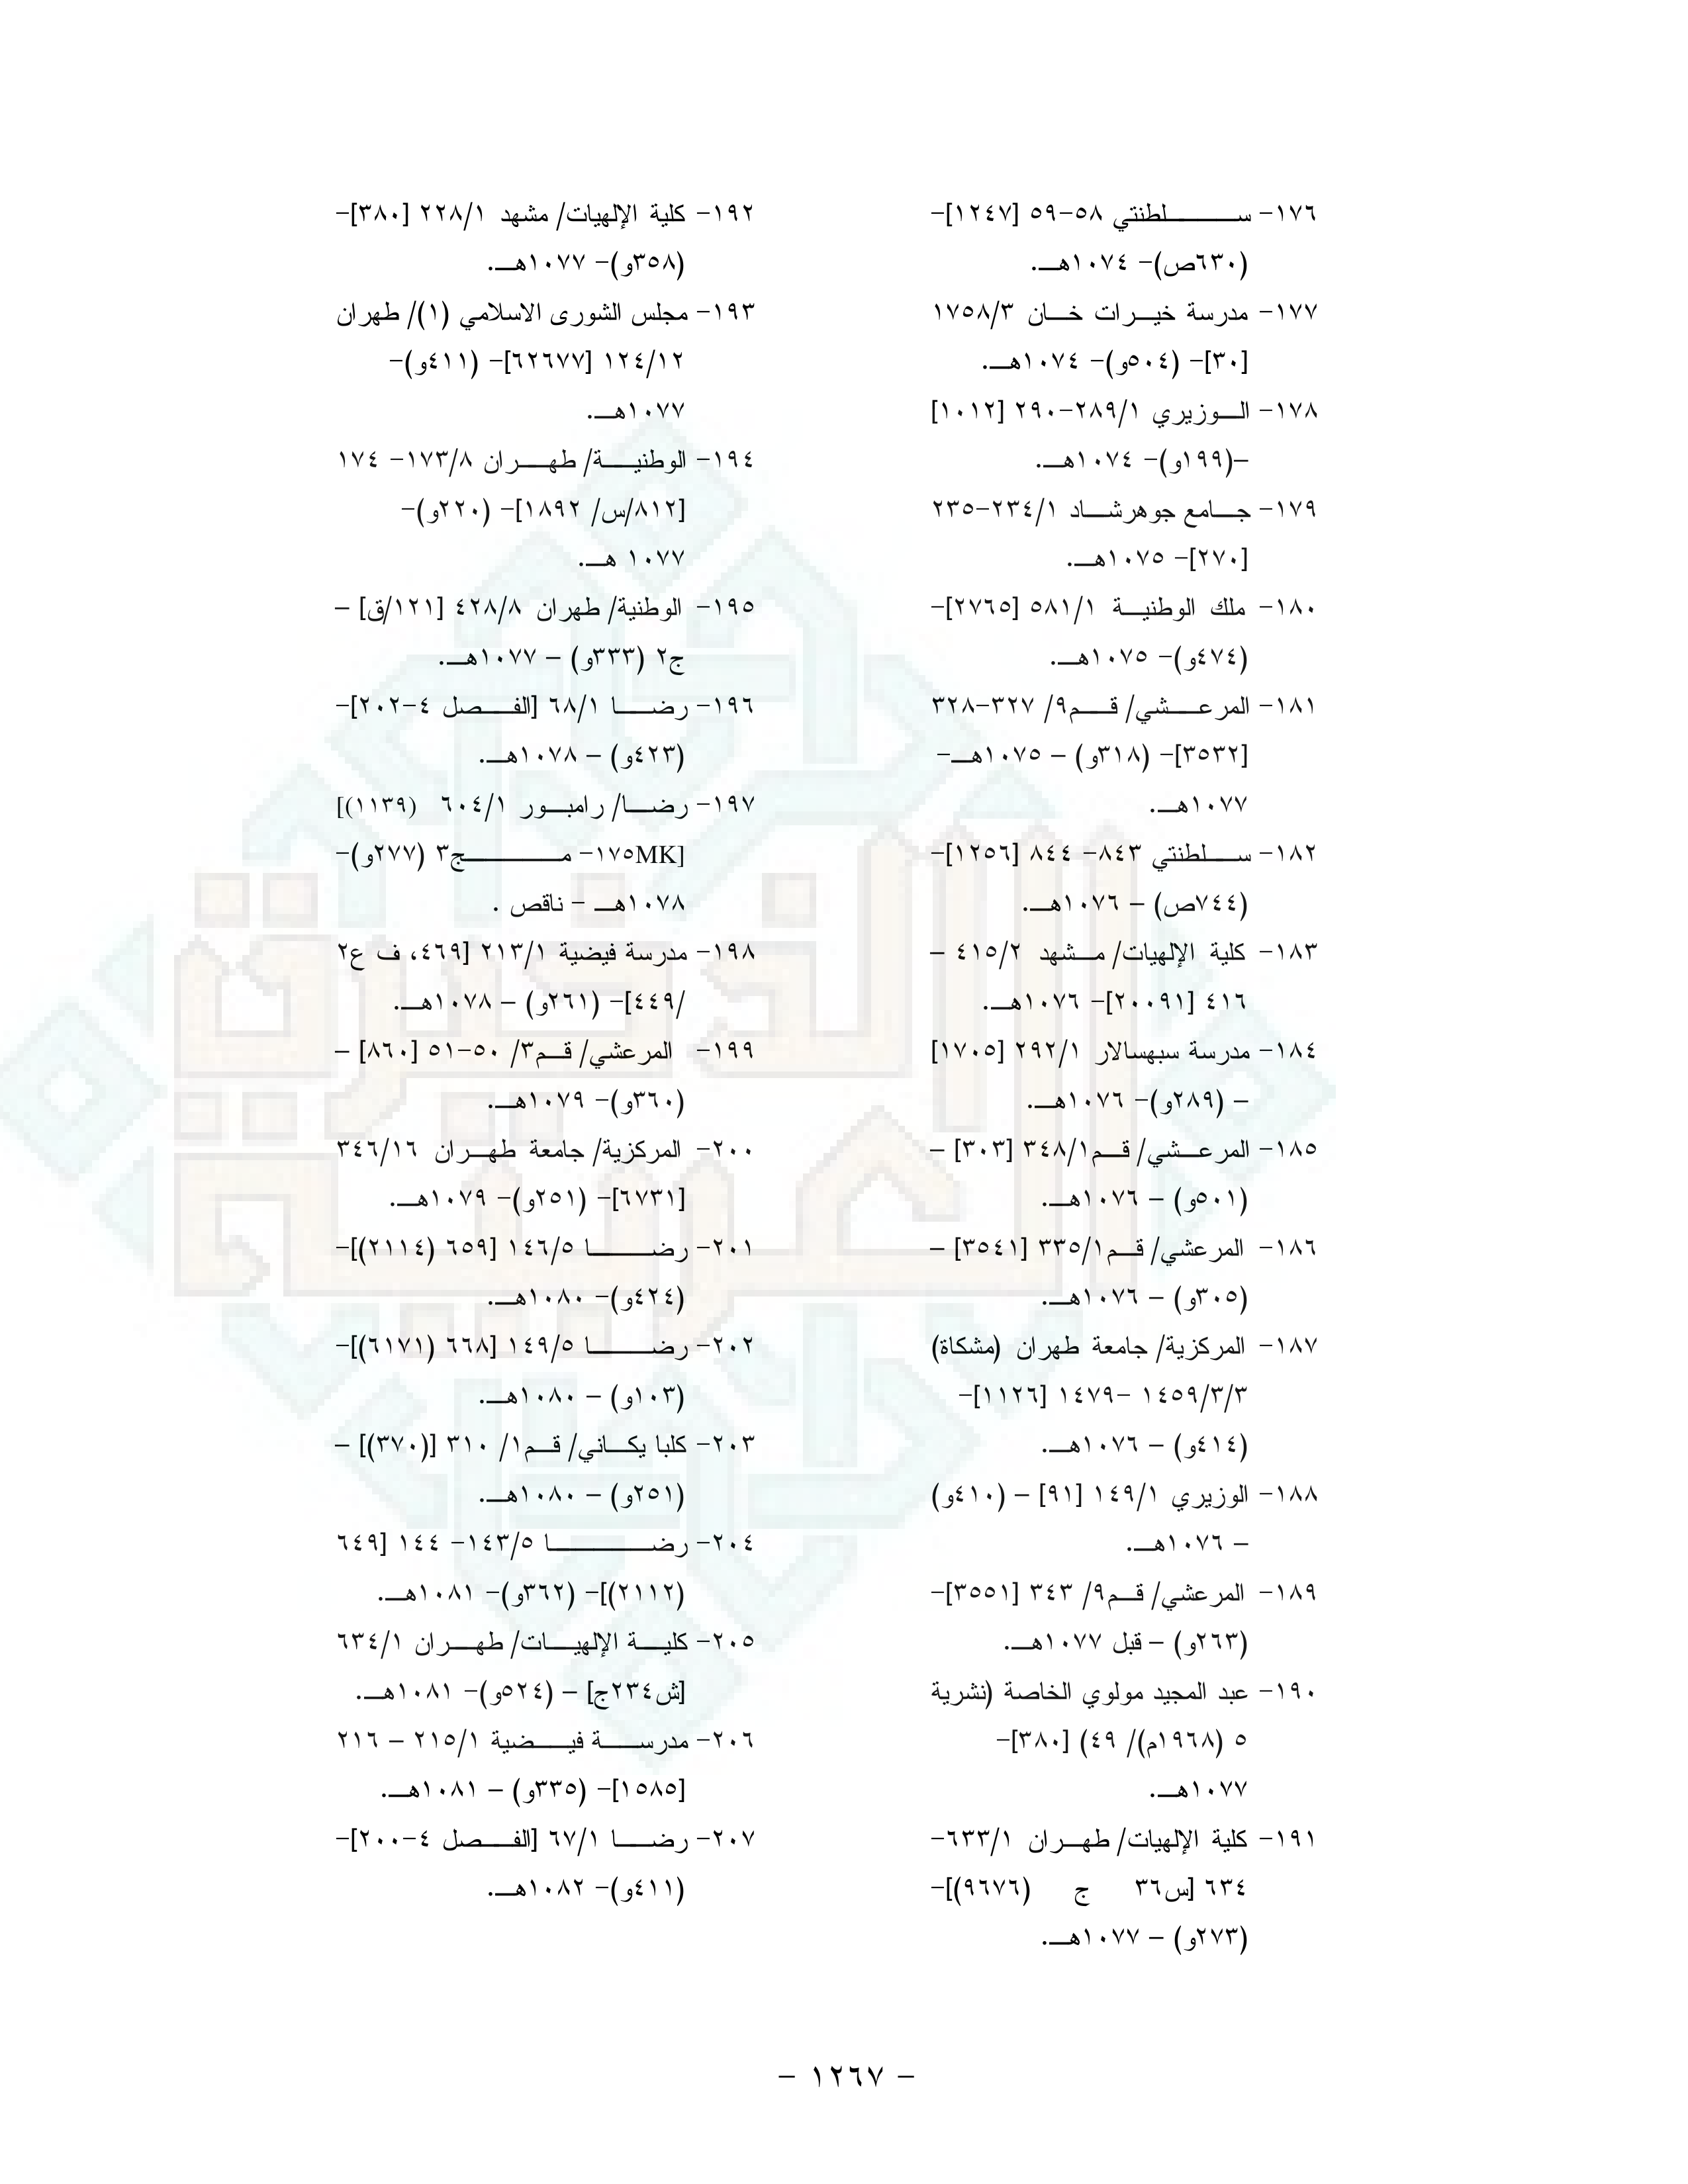 ١٧٦- سلطنتي ٥٨-٥٩ [١٢٤٧]-
(٦٣٠ص)- ١٠٧٤هـ.
١٧٧- مدرسة خيرات خان ١٧٥٨/٣
[٣٠]- (٥٠٤و)- ١٠٧٤هـ.
١٧٨- الوزيري ٢٨٩/١-٢٩٠ [١٠١٢]
-(١٩٩و)- ١٠٧٤هـ.
١٧٩- جامع جوهرشاد ٢٣٤/١-٢٣٥
[٢٧٠]- ١٠٧٥هـ.
١٨٠- ملك الوطنية ٥٨١/١ [٢٧٦٥]-
(٤٧٤و)- ١٠٧٥هـ.
١٨١- المرعشي/ قم٩/ ٣٢٧-٣٢٨
[٣٥٣٢]- (٣١٨و) – ١٠٧٥هـ-
١٠٧٧هـ.
١٨٢- سلطنتي ٨٤٣- ٨٤٤ [١٢٥٦]-
(٧٤٤ص) – ١٠٧٦هـ.
١٨٣- كلية الإلهيات/ مشهد ٤١٥/٢ –
٤١٦ [٢٠٠٩١]- ١٠٧٦هـ.
١٨٤- مدرسة سبهسالار ٢٩٢/١ [١٧٠٥]
– (٢٨٩و)- ١٠٧٦هـ.
١٨٥- المرعشي/ قم٣٤٨/١ [٣٠٣] –
(٥٠١و) – ١٠٧٦هـ.
١٨٦- المرعشي/ قم٣٣٥/١ [٣٥٤١] –
(٣٠٥و) – ١٠٧٦هـ.
١٨٧- المركزية/ جامعة طهران (مشكاة)
١٤٥٩/٣/٣ -١٤٧٩ [١١٢٦]-
(٤١٤و) – ١٠٧٦هـ.
١٨٨- الوزيري ١٤٩/١ [٩١] – (٤١٠و)
– ١٠٧٦هـ.
١٨٩- المرعشي/ قم٩/ ٣٤٣ [٣٥٥١]-
(٢٦٣و) – قبل ١٠٧٧هـ.
١٩٠- عبد المجيد مولوي الخاصة (نشرية
٥ (١٩٦٨م)/ ٤٩) [٣٨٠]-
١٠٧٧هـ.
١٩١- كلية الإلهيات/ طهران ٦٣٣/١-
٦٣٤ [س٣٦ ج (٩٦٧٦)]-
(٢٧٣و) – ١٠٧٧هـ.
١٩٢- كلية الإلهيات/ مشهد ٢٢٨/١ [٣٨٠]-
(٣٥٨و)- ١٠٧٧هـ.
١٩٣- مجلس الشورى الاسلامي (١)/ طهران
١٢٤/١٢ [٦٢٦٧٧]- (٤١١و)-
١٠٧٧هـ.
١٩٤- الوطنية/ طهران ١٧٣/٨- ١٧٤
[٨١٢/س/ ١٨٩٢]- (٢٢٠و)-
١٠٧٧ هـ.
١٩٥- الوطنية/ طهران ٤٢٨/٨ [١٢١/ق] –
ج٢ (٣٣٣و) – ١٠٧٧هـ.
١٩٦- رضا ٦٨/١ [الفصل ٤-٢٠٢]-
(٤٢٣و) – ١٠٧٨هـ.
١٩٧- رضا/ رامبور ٦٠٤/١ (١١٣٩)]
[١٧٥MK- مج٣ (٢٧٧و)-
١٠٧٨هـ - ناقص .
١٩٨- مدرسة فيضية ٢١٣/١ [٤٦٩، ف ع٢
/٤٤٩]- (٢٦١و) – ١٠٧٨هـ.
١٩٩- المرعشي/ قم٣/ ٥٠-٥١ [٨٦٠] –
(٣٦٠و)- ١٠٧٩هـ.
٢٠٠- المركزية/ جامعة طهران ٣٤٦/١٦
[٦٧٣١]- (٢٥١و)- ١٠٧٩هـ.
٢٠١- رضا ١٤٦/٥ [٦٥٩ (٢١١٤)]-
(٤٢٤و)- ١٠٨٠هـ.
٢٠٢- رضا ١٤٩/٥ [٦٦٨ (٦١٧١)]-
(١٠٣و) – ١٠٨٠هـ.
٢٠٣- كلبا يكاني/ قم١/ ٣١٠ [(٣٧٠)] –
(٢٥١و) – ١٠٨٠هـ.
٢٠٤- رضا ١٤٣/٥- ١٤٤ [٦٤٩
(٢١١٢)]- (٣٦٢و)- ١٠٨١هـ.
٢٠٥- كلية الإلهيات/ طهران ٦٣٤/١
[ش٢٣٤ج] – (٥٢٤و)- ١٠٨١هـ.
٢٠٦- مدرسة فيضية ٢١٥/١ – ٢١٦
[١٥٨٥]- (٣٣٥و) – ١٠٨١هـ.
٢٠٧- رضا ٦٧/١ [الفصل ٤-٢٠٠]-
(٤١١و)- ١٠٨٢هـ.
- ١٢٦٧ -
الذخيرة
العربية